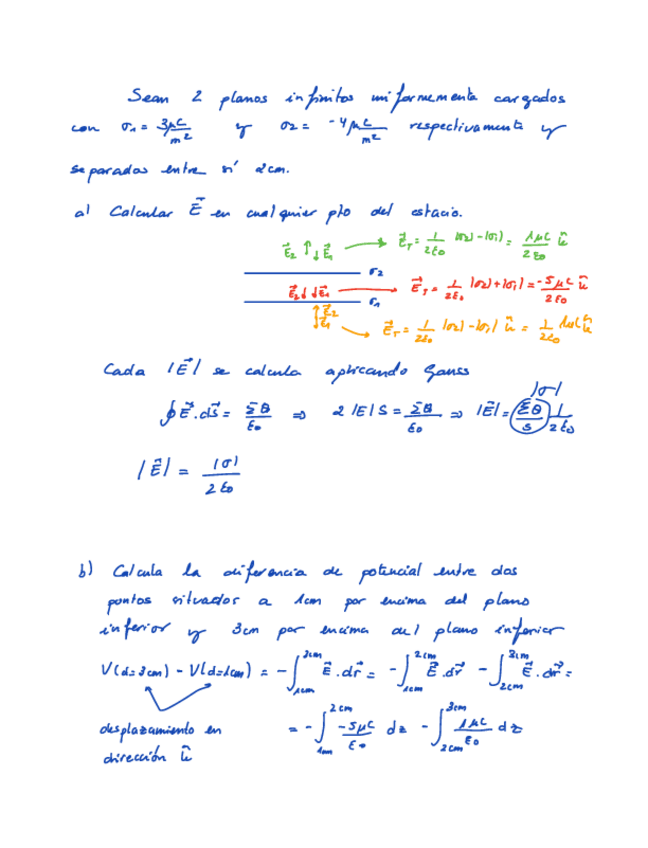 Sean 2 planos infinitos uniformemente cargados
con σ1 = 3μC/m² y σ2 = -4μC/m² respectivamente y
separados entre sí 2cm.
a) Calcular E⃗ en cualquier pto del espacio.
E⃗2 ↑↓ E⃗1 → E⃗T = 1/2ε0 |σ2|-|σ1| = 1μC/2ε0 û
σ2
E⃗2 ↓ ↓ E⃗1 → E⃗T = 1/2ε0 |σ2|+|σ1| = -5μC/2ε0 û
σ1
↑E⃗2
↓E⃗1 → E⃗T = 1/2ε0 |σ2|-|σ1| û = 1/2ε0 1μC û
Cada |E⃗| se calcula aplicando Gauss
|σ|
∮E⃗.ds⃗ = ΣQ/ε0 ⇒ 2|E|S = ΣQ/ε0 ⇒ |E⃗| = (ΣQ/S) 1/2ε0
|E⃗| = |σ|/2ε0
b) Calcula la diferencia de potencial entre dos
puntos situados a 1cm por encima del plano
inferior y 3cm por encima del plano inferior
V(d=3cm) - V(d=1cm) = -∫1cm^3cm E⃗.dr⃗ = -∫1cm^2cm E⃗.dr⃗ - ∫2cm^3cm E⃗.dr⃗ =
desplazamiento en
dirección û
= -∫1cm^2cm -5μC/ε0 dz - ∫2cm^3cm 1μC/ε0 dz